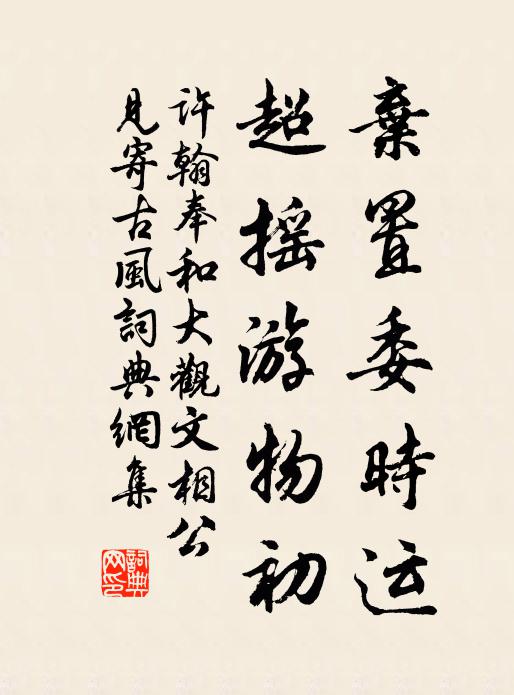 棄置委時运
超摇游物初
許翰奉和大觀文相公
見寄古風詞典網集
詞典网印